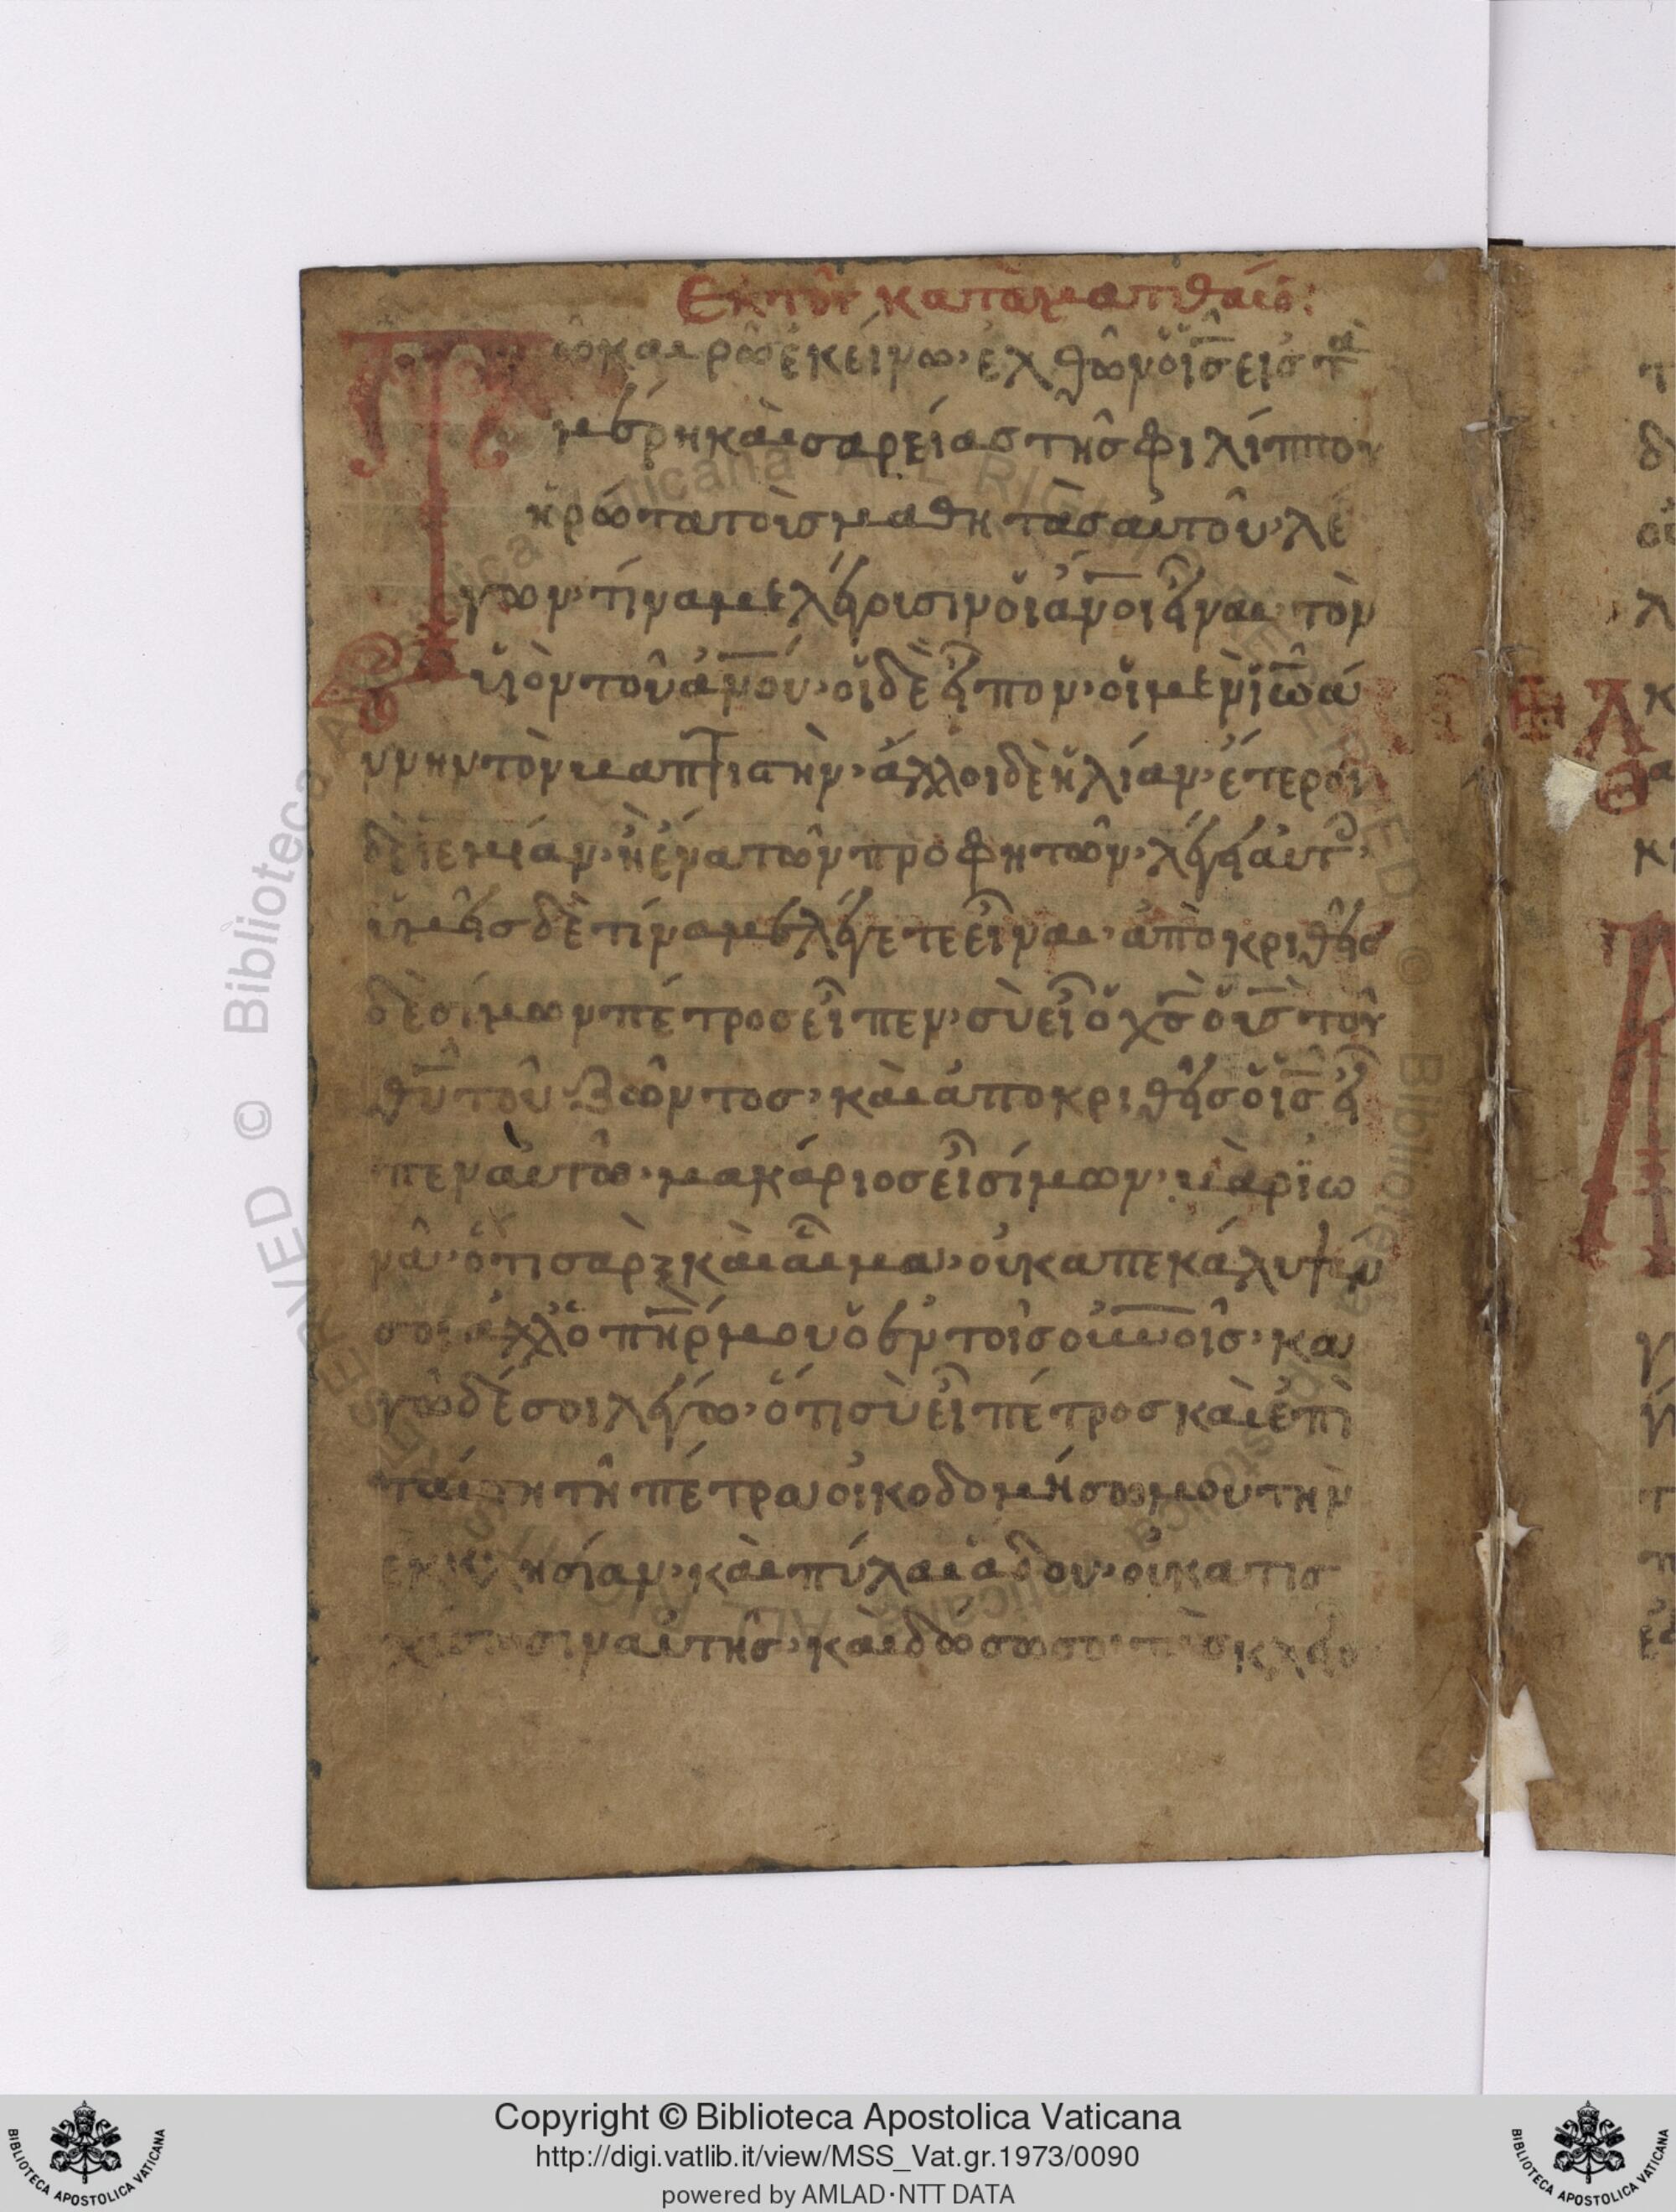 Ἐκ τοῦ κατὰ ματθαίο(ν):
Τῷ καιρῷ ἐκείνω· ἐλθὼν ὁ ἰ̅σ̅ εἰς τὰ
μέρη καισαρείας τῆς φιλίππου
ἠρώτα τοὺς μαθητὰς αὐτοῦ· λέ
γων· τίνα με λέγουσιν οἱ ἄν̅οι εἶναι· τὸν
υἱὸν τοῦ ἀν̅ου· οἱ δὲ εἶπον· οἱ μὲν ἰωά
ννην τὸν βαπτιστὴν· ἄλλοι δὲ ἠλίαν· ἕτεροι
δὲ ἱερεμίαν· ἢ ἕνα τῶν προφητῶν· λέγει αὐτοῖς·
ὑμεῖς δὲ τίνα με λέγετε εἶναι· ἀποκριθεὶς
δὲ σίμων πέτρος εἶπεν· σὺ εἶ ὁ χ̅σ̅ ὁ υ̅σ̅ τοῦ
θ̅υ̅ τοῦ ζῶντος· καὶ ἀποκριθεὶς ὁ ἰ̅σ̅ εἶ
πεν αὐτῷ· μακάριος εἶ σίμων· βὰρ ἰω
νᾶ· ὅτι σὰρξ καὶ αἷμα· οὐκ ἀπεκάλυψέν
σοι ἀλλ᾽ ὁ π̅η̅ρ̅ μου ὁ ἐν τοῖς οὐν̅οῖς· κα
γὼ δέ σοι λέγω· ὅτι σὺ εἶ πέτρος καὶ ἐπὶ
ταύτη τῆ πέτρα οἰκοδομήσω μου τὴν
ἐκκλησίαν· καὶ πύλαι ἅδου· οὐ κατισ
χύσουσιν αὐτῆς· καὶ δώσω σοι τὰς κλεῖς
Copyright © Biblioteca Apostolica Vaticana
http://digi.vatlib.it/view/MSS_Vat.gr.1973/0090
powered by AMLAD·NTT DATA
BIBLIOTECA APOSTOLICA VATICANA
BIBLIOTECA APOSTOLICA VATICANA